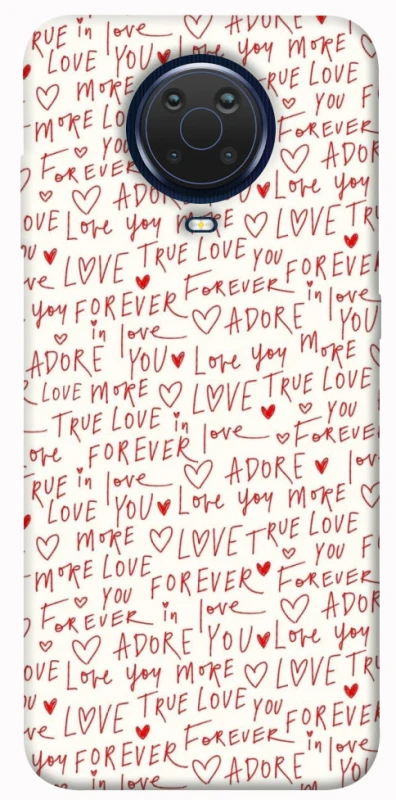 TRUE in love ADORE
LOVE YOU Love you more
MORE LOVE TRUE LOVE
MORE YOU
FOREVER YOU FOREVER
ADORE Love you
LOVE Love you more LOVE TRUE
LOVE TRUE LOVE YOU FOREVER
you FOREVER FOREVER in love
in love ADORE YOU
ADORE YOU Love you MORE
LOVE MORE LOVE TRUE LOVE
TRUE LOVE in love YOU
love FOREVER FOREVER
TRUE in love ADORE
LOVE YOU Love you more
MORE LOVE TRUE LOVE
MORE LOVE YOU
FOREVER FOREVER
FOREVER in love ADORE
ADORE YOU Love you
LOVE Love you more LOVE TRUE
LOVE TRUE LOVE YOU FOREVER
you FOREVER FOREVER in love
in love ADORE YOU